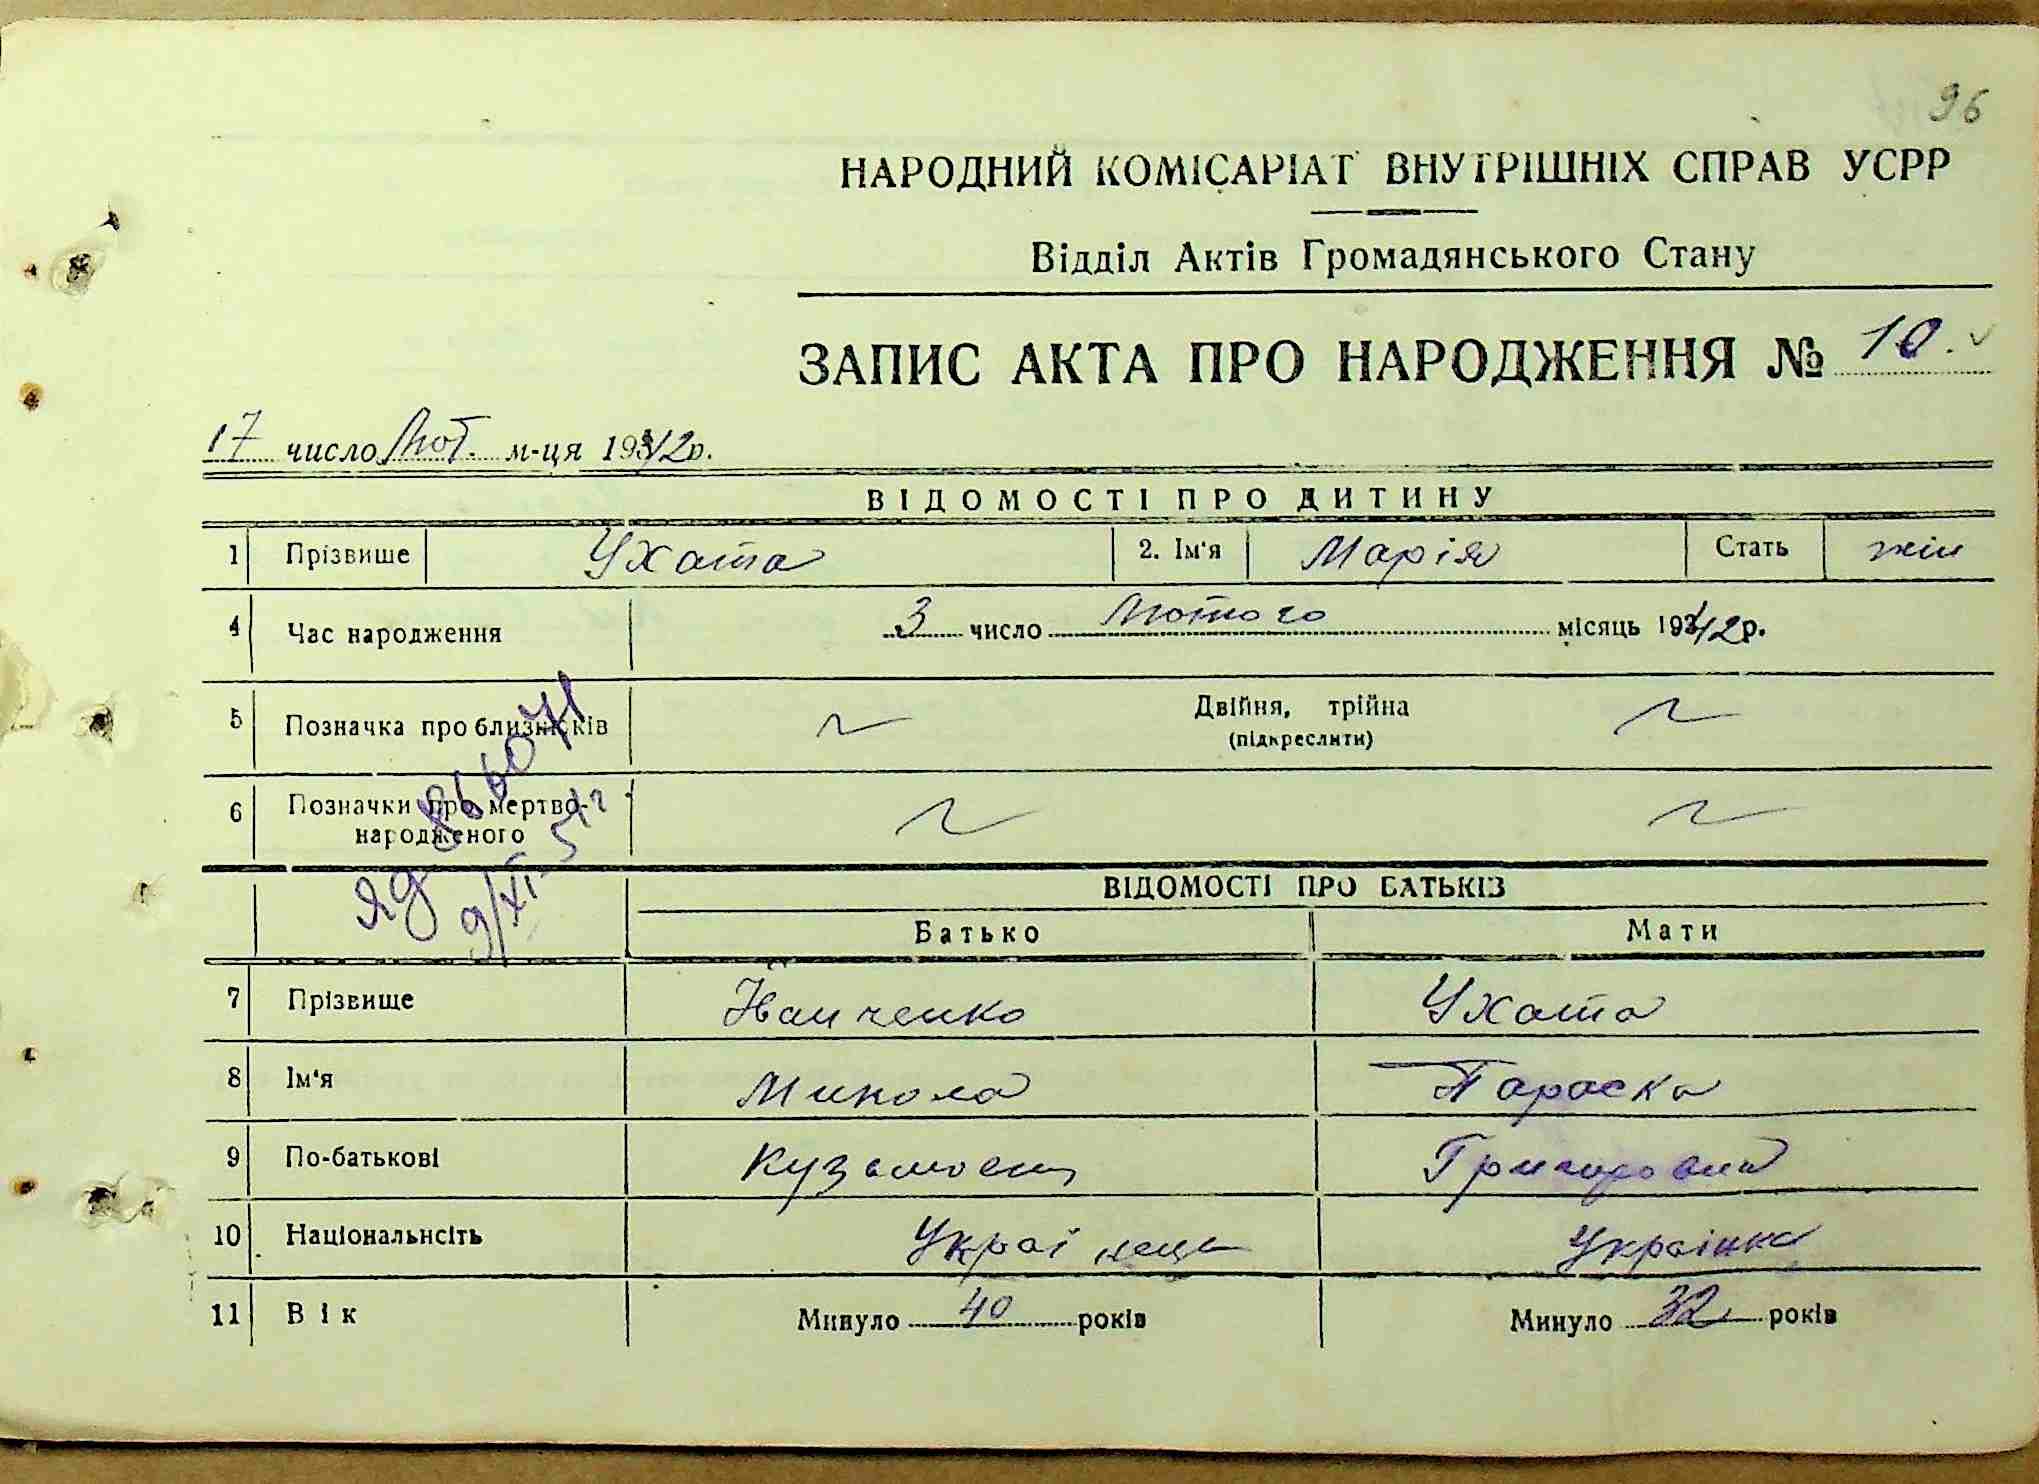 96
НАРОДНИЙ КОМІСАРІАТ ВНУТРІШНІХ СПРАВ УСРР
Відділ Актів Громадянського Стану
ЗАПИС АКТА ПРО НАРОДЖЕННЯ № 10
17 число Лют. м-ця 1942р.
ВІДОМОСТІ ПРО ДИТИНУ
1 Прізвише Ухата 2. Ім'я Марія Стать жін
4 Час народження 3 число Лютого місяць 1942р.
5 Позначка про близнюків Двійня, трійна
(підкреслити)
6 Позначки про мертво-
народженого
ВІДОМОСТІ ПРО БАТЬКІВ
Батько Мати
7 Прізвище Ухата
8 Ім'я Микола Параска
9 По-батькові Кузьмович Григоровна
10 Національнсіть Українець Українка
11 Вік Минуло 40 років Минуло 32 років